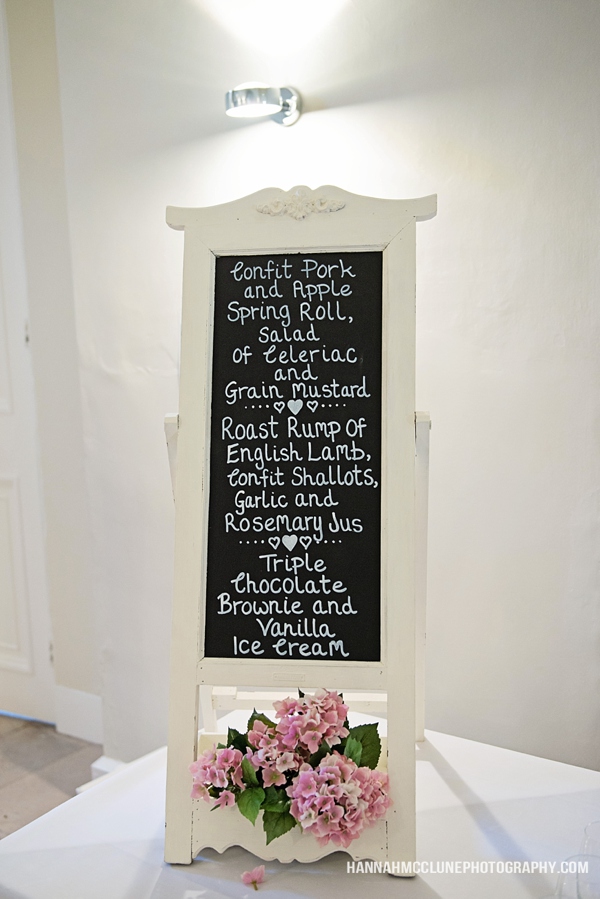 Confit Pork
and Apple
Spring Roll,
Salad
of Celeriac
and
Grain Mustard
Roast Rump Of
English Lamb,
Confit Shallots,
Garlic and
Rosemary Jus
Triple
Chocolate
Brownie and
Vanilla
Ice Cream
HANNAHMCCLUNEPHOTOGRAPHY.COM